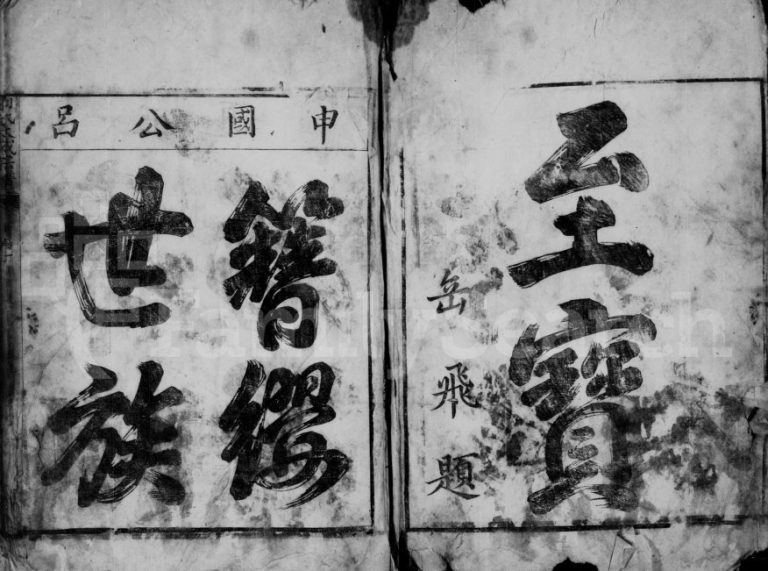 至寶
岳飛題
申國公呂
簪纓
世族
FamilySearch